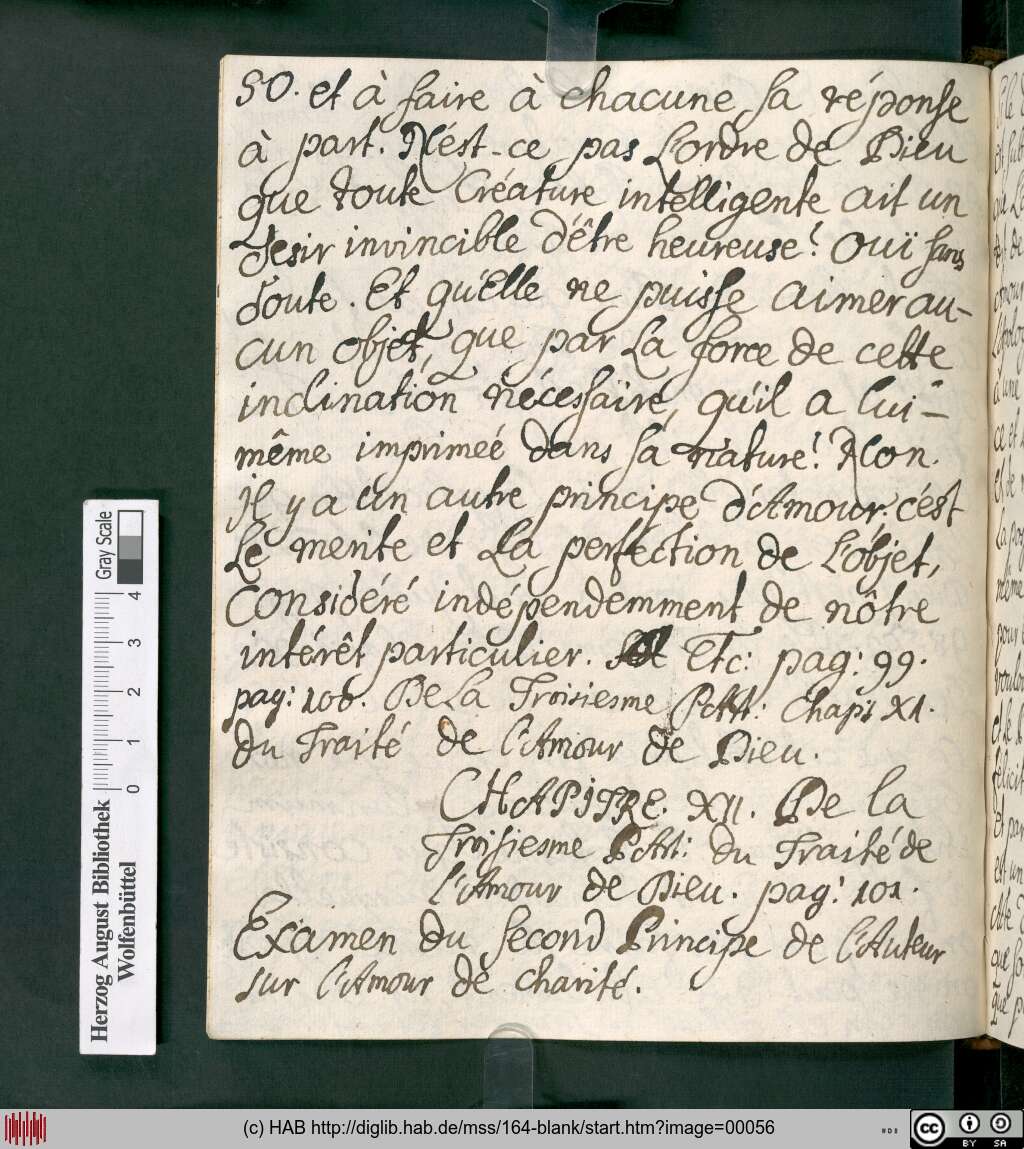 50. et à faire à chacune sa réponse
à part. N'ést-ce pas L'ordre de Dieu
que toute Créature intelligente ait un
desir invincible d'être heureuse? Ouï sans
doute. Et qu'Elle ne puisse aimer au-
cun objet, que par La force de cette
inclination nécessaire, qu'il a lui-
même impriméé dans sa nature? Non.
Jl y a un autre principe d'Amour. c'est
Le merite et La perfection de L'objet,
Considéré indépendemment de nôtre
intérêt particulier. Etc: pag: 99.
pag: 100. De La Troisiesme Patt: Chap: XI.
du Traité de l'Amour de Dieu.
CHAPITRE. XII. De la
Troisiesme Patt: du Traité de
l'Amour de Dieu. pag: 101.
Examen du second Principe de l'Auteur
sur l'Amour de charité.
Gray Scale
0 1 2 3 4
Herzog August Bibliothek
Wolfenbüttel
(c) HAB http://diglib.hab.de/mss/164-blank/start.htm?image=00056
cc BY SA